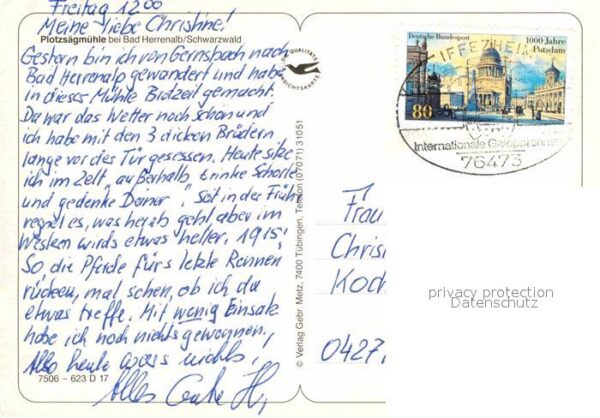 Freitag 12⁰⁰
Meine liebe Christine!
Plotzsägmühle bei Bad Herrenalb/Schwarzwald
Gestern bin ich von Gernsbach nach
Bad Herrenalp gewandert und habe
in dieses Mühle Brotzeit gemacht.
Da war das Wetter noch schön und
ich habe mit den 3 dicken Brüdern
lange vor des Tür gesessen. Heute sitze
ich im Zelt „außerhalb", trinke Schorle
und gedenke Deiner". Seit in der Früh
regnet es, was herab geht aber im
Westen wirds etwas heller. 1915!
So, die Pferde fürs letzte Rennen
rücken, mal sehen, ob ich da
etwas treffe. Mit wenig Einsatz
habe ich noch nichts gewonnen.
Also heute wars nichts,
Alles Gute H,
7506 - 623 D 17
DIE QUALITÄTS
ANSICHTSKARTE
© Verlag Gebr. Metz, 7400 Tübingen, Telefon (07071) 31051
Deutsche Bundespost
1000 Jahre
Potsdam
80
IFFEZHEIM
Internationale Galopprennen
76473
Frau
Chris
Koch
0427
privacy protection
Datenschutz